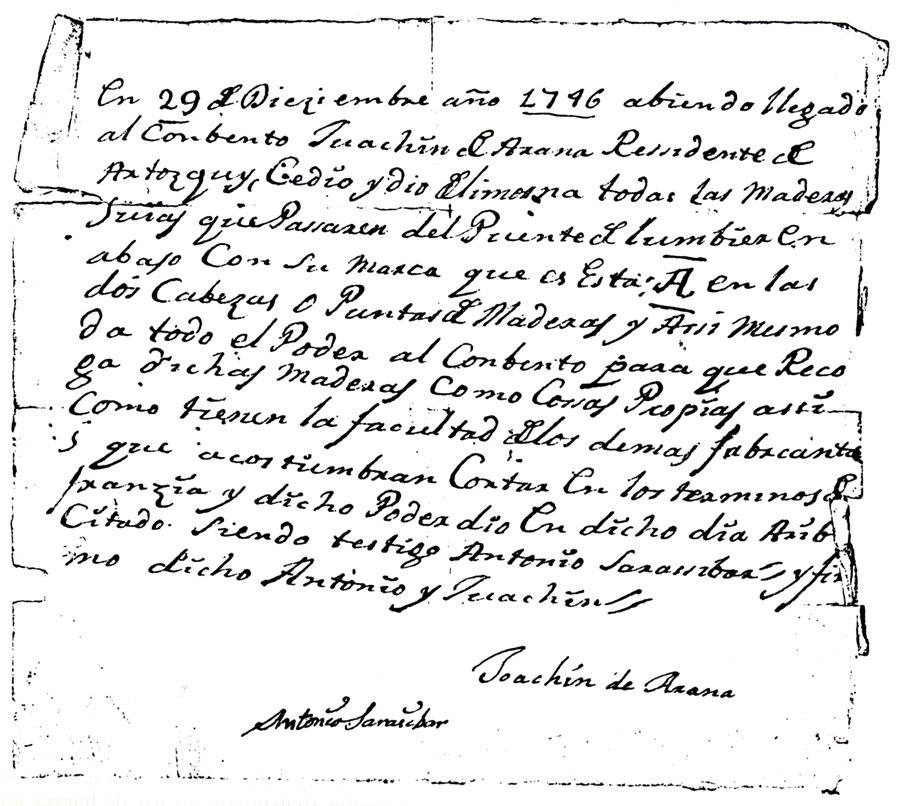 En 29 de Dieziembre año 1746 abiendo llegado
al Conbento Juachin de Arana Ressidente de
Artozquy, Cedio y dio de limosna todas las Maderas
suias que Passaren del Puente de lumbier En
abajo Con su marca que es Esta: A en las
dos Cabezas o Puntas de Maderas y Assi Mesmo
da todo el Poder al Conbento para que Reco
ga dichas maderas Como Cossas Propias assi
Como tienen la facultad de los demas fabricante
s que acostumbran Cortar En los terminos de
franzia y dicho Poder dio En dicho dia Arib
Citado. Siendo testigo Antonio Sarassibar y fir
mo dicho Antonio y Juachin
Joachin de Arana
Antonio Saraicbar